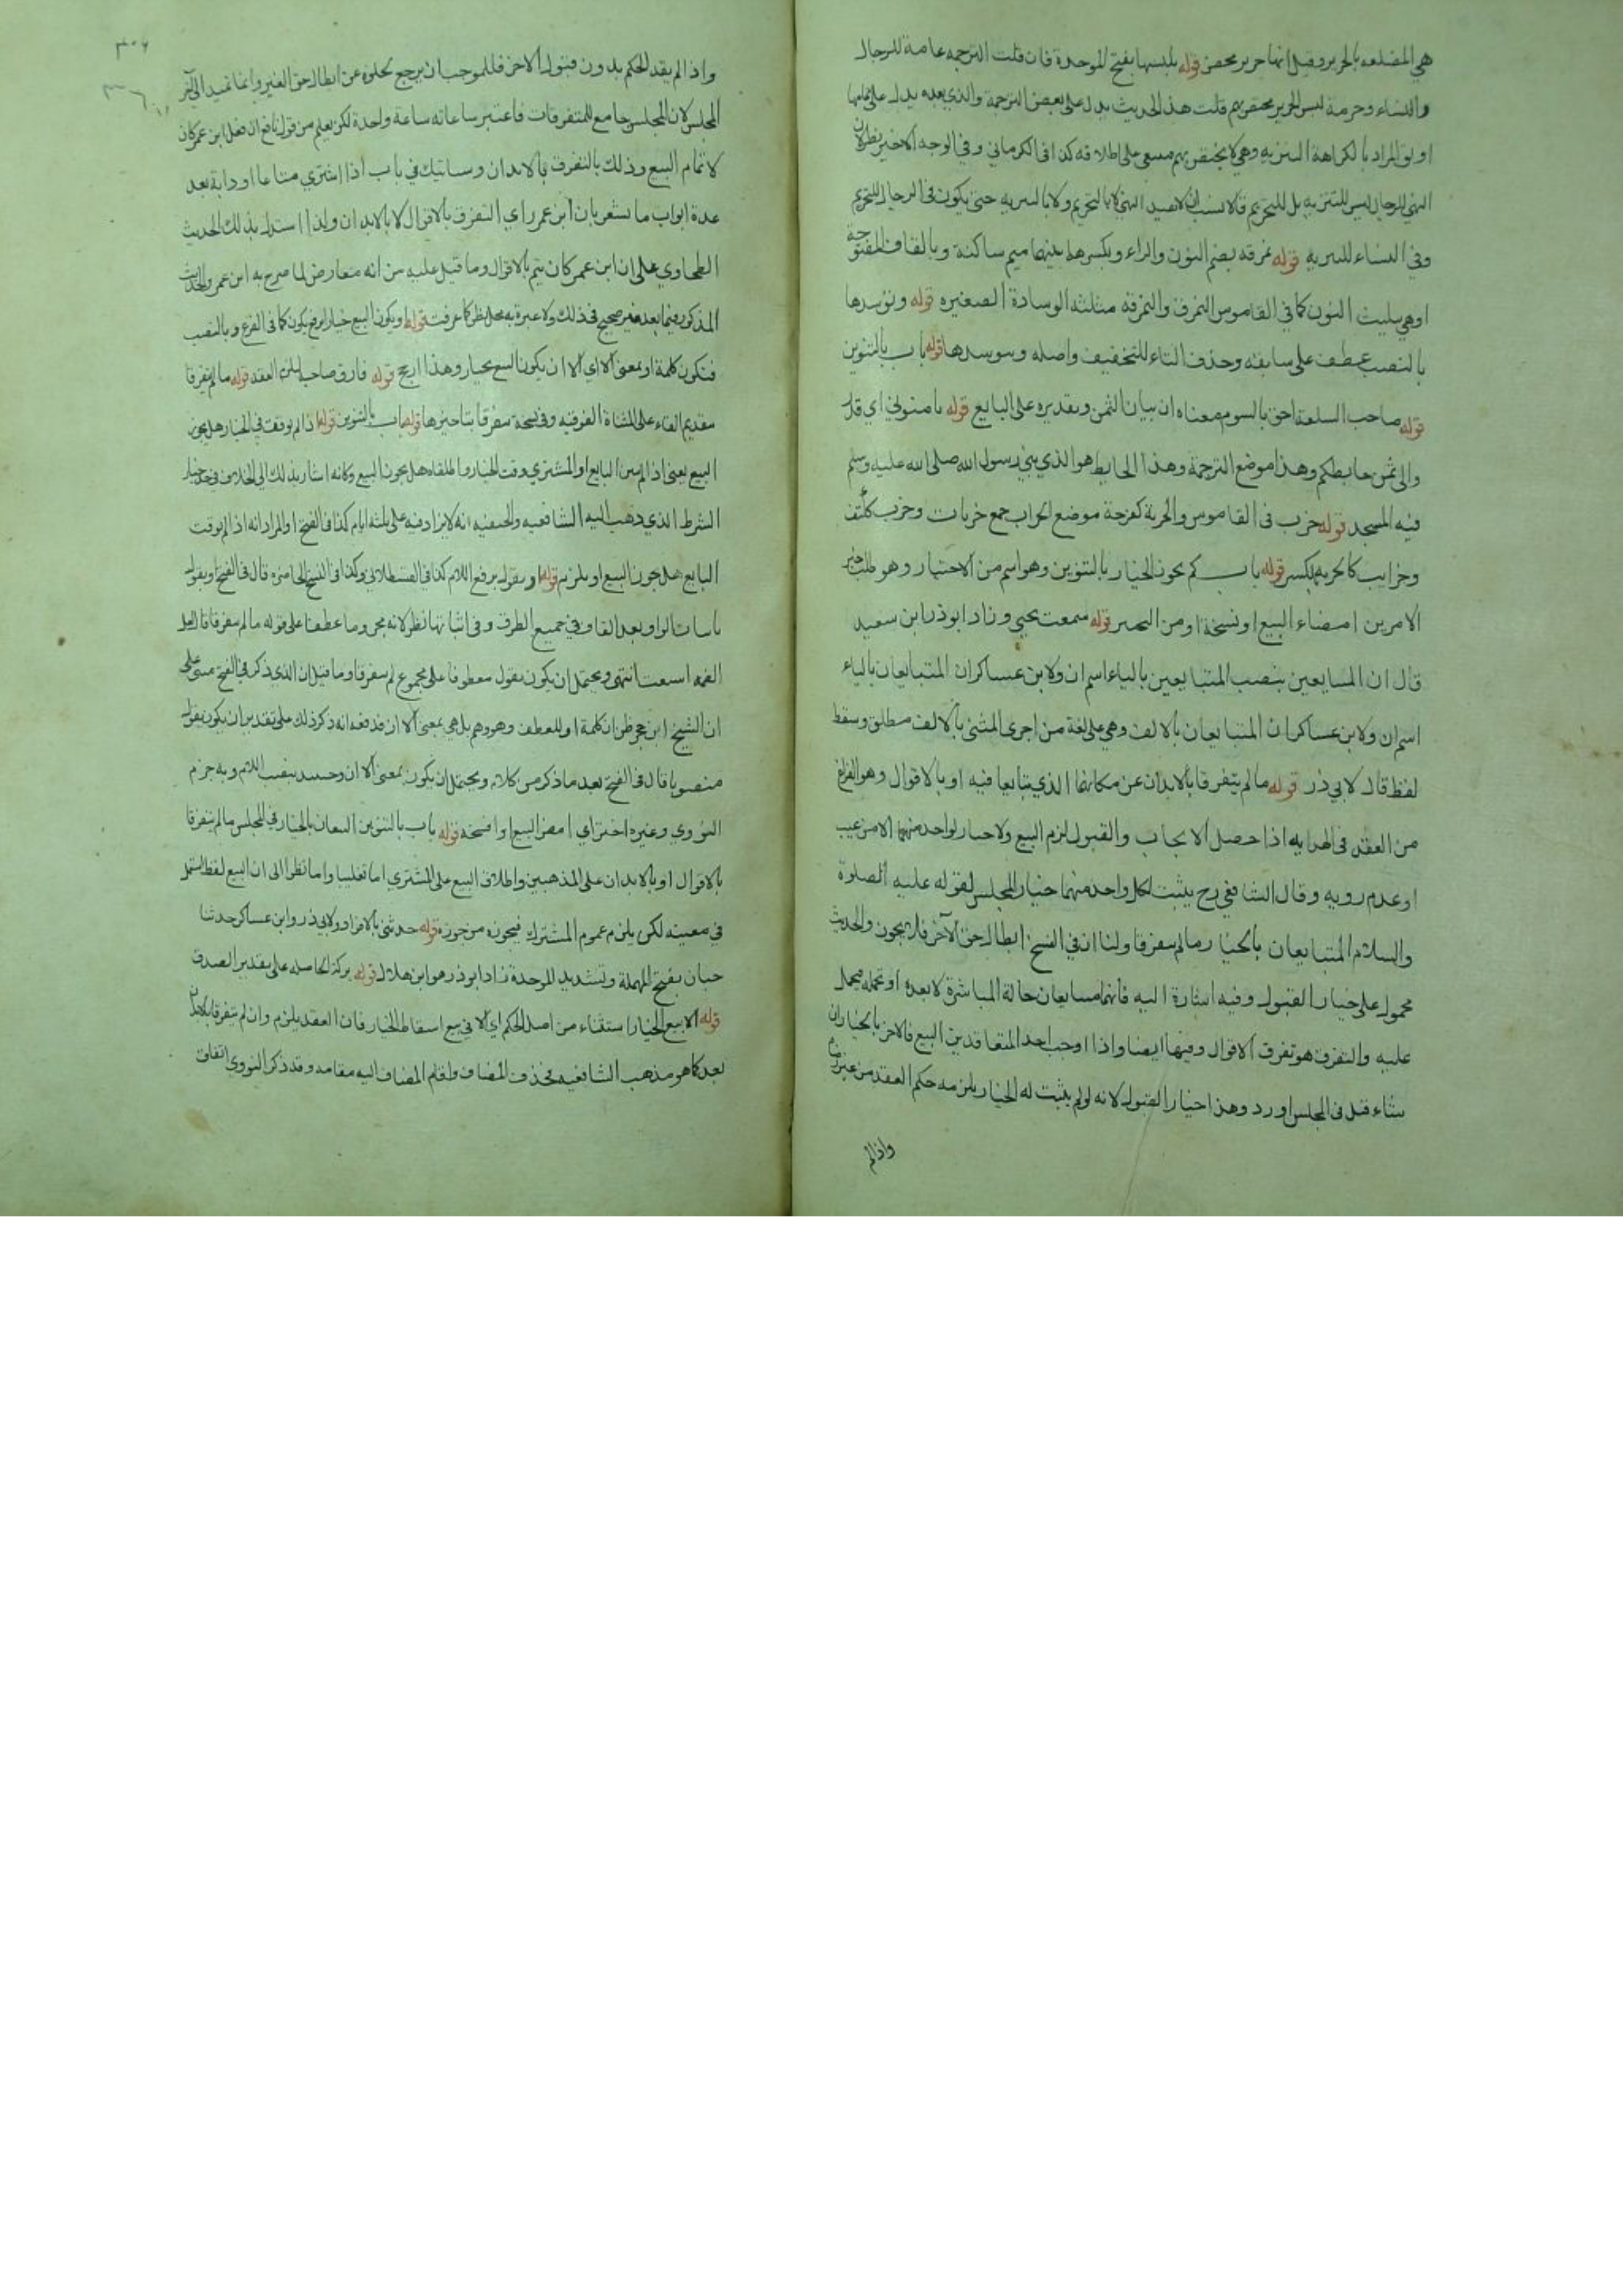 هي المضلعه بالحرير وقيل انها حرير محض قوله يلبسها بفتح الموحدة فان قلت الترجمه عامة للرجال
والنساء وحرمة لبس الحرير مختص بهم قلت هذا الحديث يدل على بعض الترجمة والذي بعده يدل على تمامها
او نقول المراد بالكراهة التنزيه وهي لا يختص بهم مسعى على اطلاقه كذا في الكرماني وفي الوجه الاخير نظر لان
النهي للرجال ليس للتنزيه بل للتحريم فالانسب ان لا تقييد النهي لا بالتحريم ولا بالتنزيه حتى يكون في الرجال للتحريم
وفي النساء للتنزيه قوله نمرقه بضم النون والراء وبكسرها بينهما ميم ساكنة وبالقاف المفتوحة
او هي بتثليث النون كما في القاموس النمرق والنمرقة مثلثة الوسادة الصغيرة قوله وتوسدها
بالنصب عطف على سابقه وحذف التاء للتخفيف واصله وتتوسدها قوله باب بالتنوين
قوله صاحب السلعة احق بالسوم معناه ان بيان الثمن وتقديره على البايع قوله ثامنوني اي قدر
والى ثمن حايطكم وهذا موضع الترجمة وهذا الحايط هو الذي بني رسول الله صلى الله عليه وسلم
فيه المسجد قوله خرب في القاموس والخربة كفرحة موضع الخراب جمع خربات وخرب ككتف
وخرايب كالخربه بالكسر قوله باب كم يجوز الخيار بالتنوين وهو اسم من الاختيار وهو طلب خير
الامرين امضاء البيع او نسخة او من التخيير قوله سمعت يحيى وزاد ابو ذر ابن سعيد
قال ان المتبايعين بنصب المتبايعين بالياء اسم ان ولابن عساكر ان المتبايعان بالياء
اسم ان ولابن عساكر ان المتبايعان بالالف وهي على لغة من اجرى المثنى بالالف مطلق وسقط
لفظ قال لابي ذر قوله ما لم يتفرقا بالابدان عن مكانهما الذي تبايعا فيه او بالاقوال وهو الفراغ
من العقد في الهدايه اذا حصل الايجاب والقبول لزم البيع ولا خيار لواحد منهما الا من عيب
او عدم رويه وقال الشافعي رح يثبت لكل واحد منهما خيار المجلس لقوله عليه الصلوة
والسلام المتبايعان بالخيار ما لم يتفرقا ولنا ان في الفسخ ابطال حق الآخر فلا يجوز والحديث
محمول على خيار القبول وفيه اشارة اليه فانهما متبايعان حالة المباشرة لا بعده او يحتمله فيحمل
عليه والتفرق هو تفرق الاقوال وفيها ايضا واذا اوجب احد المتعاقدين البيع فالاخر بالخيار ان
شاء قبل في المجلس او رد وهذا خيار القبول لانه لو لم يثبت له الخيار يلزمه حكم العقد من غير رضاه
واذا لم
٣٠٦
واذا لم يفد الحكم بدون قبول الاخر فللموجب ان يرجع لخلوه عن ابطال حق الغير وانما تمتد الى آخر
المجلس لان المجلس جامع للمتفرقات فاعتبر ساعاته ساعة واحدة لكن يعلم من قول نافع ان فعل ابن عمر كان
لاتمام البيع وذلك بالتفرق بالابدان وسياتيك في باب اذا اشترى متاعا او دابة بعد
عدة ابواب ما يشعر بان ابن عمر راى التفرق بالاقوال لا بالابدان ولذا استدل بذلك الحديث
الطحاوي على ان ابن عمر كان يتم بالاقوال وما قيل عليه من انه معارض لما صرح به ابن عمر والحديث
المذكور فيما بعد غير صحيح في ذلك ولا عبرة به محل نظر كما عرفت قوله او يكون البيع خيار برفع يكون كما في الفرع وبالنصب
فتكون كلمة او بمعنى الا اي الا ان يكون البيع بخيار وهذا ارجح قوله فارق صاحبه ليلزم العقد قوله ما لم يفترقا
بتقديم الفاء على المثناة الفوقيه وفي نسخة يتفرقا بتاخيرها قوله باب بالتنوين قوله اذا لم يوقت في الخيار هل يجوز
البيع يعني اذا لم يبين البايع او المشتري وقت الخيار واطلقاه هل يجوز البيع وكانه اشار بذلك الى الخلاف في حد خيار
الشرط الذي ذهب اليه الشافعيه والحنفيه انه لا يزاد فيه على ثلثة ايام كذا في الفتح او المراد انه اذا لم يوقت
البايع هل يجوز البيع او يلزم قوله او يقول برفع اللام كذا في القسطلاني وكذا في النسخ الحاضره قال في الفتح او يقول
باثبات الواو بعد القاف في جميع الطرق وفي اثباتها نظر لانه مجزوما عطفا على قوله ما لم يتفرقا فلعل
الضمه اشبعت انتهى ويحتمل ان يكون يقول معطوفا على مجموع لم يتفرقا وما قيل ان الذي ذكر في الفتح مبني على
ان الشيخ ابن حجر ظن ان كلمة او للعطف وهو وهم بل هي بمعنى الا ان فدفعه انه ذكر ذلك على تقدير ان يكون يقول
منصوبا قال في الفتح بعد ما ذكر من كلامه ويحتمل ان يكون بمعنى الا ان وحينئذ بنصب اللام وبه جزم
النووي وغيره اختر اي امض البيع او افسخه قوله باب بالتنوين البيعان بالخيار في المجلس ما لم يتفرقا
بالاقوال او بالابدان على المذهبين واطلاق البيع على المشتري اما تغليبا واما نظرا الى ان البيع لفظ يستعمل
في معنييه لكن يلزم عموم المشترك فيجوزه من جوزه قوله حدثني بالافراد ولابي ذر وابن عساكر حدثنا
حبان بفتح المهملة وتشديد الموحدة زاد ابو ذر هو ابن هلال قوله بركة الحاصله على تقدير الصدق
قوله الا بيع الخيار استثناء من اصل الحكم اي الا في بيع اسقاط الخيار فان العقد يلزم وان لم يتفرقا
بعد كما هو مذهب الشافعيه فحذف المضاف واقام المضاف اليه مقامه وقد ذكر النووي اتفاق